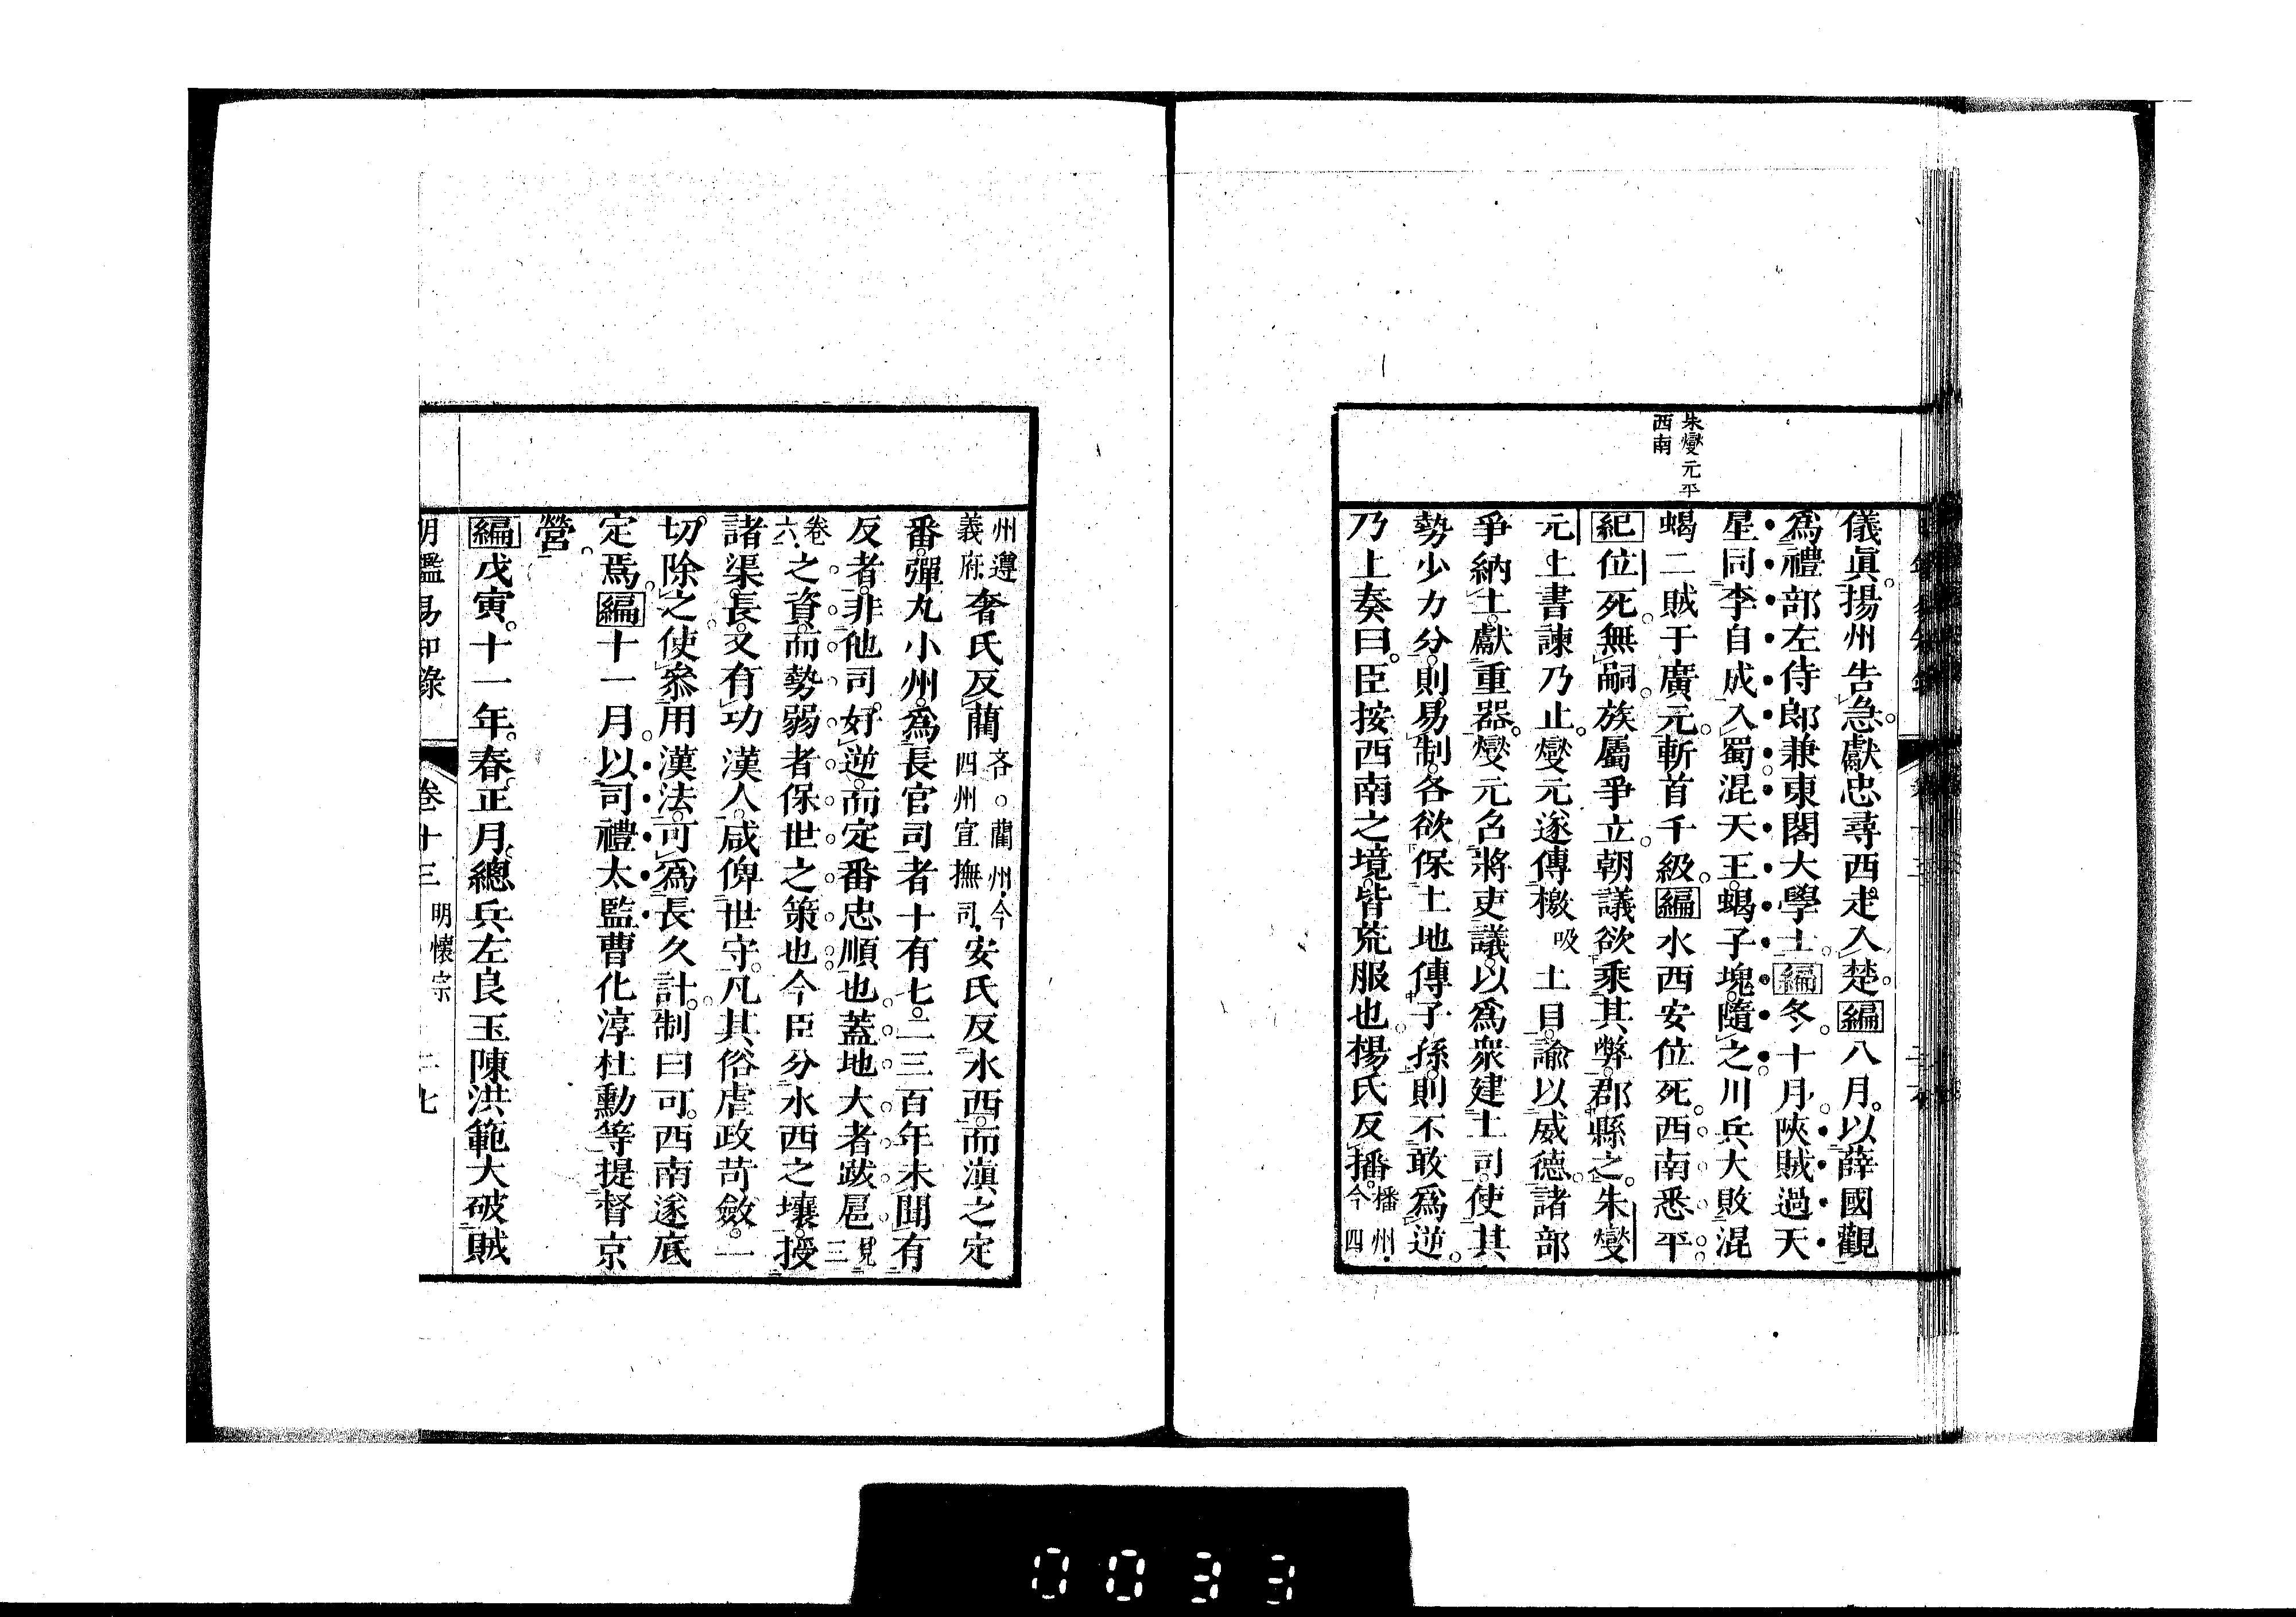 朱燮元平
西南
儀眞揚州告急獻忠尋西走入楚編八月以薛國觀
爲禮部左侍郎兼東閣大學士編冬十月陝賊過天
星同李自成入蜀混天王蝎子塊隨之川兵大敗混
蝎二賊于廣元斬首千級編水西安位死西南悉平
紀位死無嗣族屬爭立朝議欲乘其弊郡縣之朱燮
元上書諫乃止燮元遂傳檄吸土目諭以威德諸部
爭納土獻重器燮元召將吏議以爲衆建土司使其
勢少力分則易制各欲保土地傳子孫則不敢爲逆
乃上奏曰臣按西南之境皆荒服也楊氏反播播州今四
州遵義府奢氏反藺吝○藺州今四州宣撫司安氏反水西而滇之定
番彈丸小州爲長官司者十有七二三百年未聞有
反者非他司好逆而定番忠順也蓋地大者跋扈見三
卷六之資而勢弱者保世之策也今臣分水西之壤授
諸渠長又有功漢人咸俾世守凡其俗虐政苛斂一
切除之使叅用漢法可爲長久計制曰可西南遂底
定焉編十一月以司禮太監曹化淳杜勳等提督京
營
編戊寅十一年春正月總兵左良玉陳洪範大破賊
明鑑易知錄 卷十三 明懷宗 二七
0033